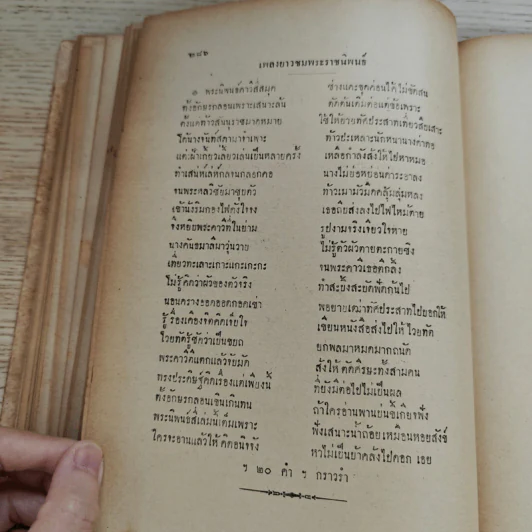 ๒๘๒
เพลงยาวชมพระราชนิพนธ์
๏ พระนิพนธ์คาวีสี่สมุด ช่างแคะขุดค่อนได้ไม่ขัดสน
ทั้งอักษรกลอนเพราะเสนาะล้น คัดค้นเต็มตอนแต่ข้อเพราะ
ตั้งแต่ท้าวสันนุราชมาดหมาย ใช้ให้ยายทัศประสาทเที่ยวสืบเสาะ
ได้นางจันท์สุดามาจำเพาะ ท้าวเปาะเหลาะนักหนานางคำทอ
แต่เฝ้าเกี้ยวเลี้ยวเล่นเป็นหลายครั้ง เหลือกำลังสั่งให้ไปหาหมอ
ทำเสน่ห์เล่ห์กลจนกลอกคอ นางไม่ย่อหย่อนคำระอาลง
จนพระหลวิชัยมาชุบตัว ท้าวเมามัวมืดคลุ้มลุ่มหลง
เข้านั่งริมกองไฟตั้งใจจง เธอถีบส่งลงไปไฟไหม้ตาย
จึงหยิบพระคาวีที่ในย่าม รูปงามจริงเจียวใจหาย
นางคันธมาลีมาวุ่นวาย ไม่รู้ตัวผัวตายตะกายซิง
เที่ยวทะเลาะเกาะแกะเกะกะ จนพระคาวีเธอตีกลิ้ง
ไม่รู้คิดว่าผัวของตัวจริง ทำสะบิ้งสะบัดพัดกันไป
นอนครางออดออดกอดเข่า พอยายเฒ่าทัศประสาทไปบอกให้
รู้เรื่องเคืองจิตคิดเจ็บใจ เขียนหนังสือส่งไปให้ไวยทัต
ไวยทัตรู้ชัดว่าเป็นขบถ ยกพลมาหมดมากถนัด
พระคาวีตีแตกแล้วจับมัด สั่งให้ตัดศีร์ษะทั้งสามคน
ทรงประดิษฐ์คิดเรื่องแต่เพียงนี้ ที่ยังมีต่อไปไม่เป็นผล
ทั้งอักษรกลอนเกินเกินทน ถ้าใครอ่านพานย่นย่อเกียจฟัง
พระนิพนธ์สี่เล่มนั้นเต็มเพราะ ฟังเสนาะน้ำถ้อยเหมือนหอยสังข์
ใครจะอ่านแล้วให้คิดอนิจจัง หาไม่เป็นบ้าคลั่งไปดอก เอย
ฯ ๒๐ คำ ฯ กราวรำ